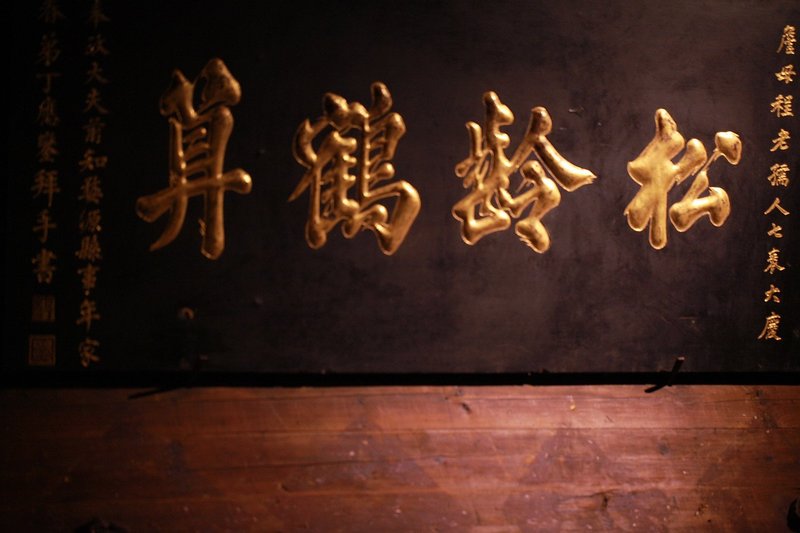 詹母程老孺人七袠大慶
松齡鶴算
奉政大夫前知婺源縣事年家
眷弟丁應鏊拜手書